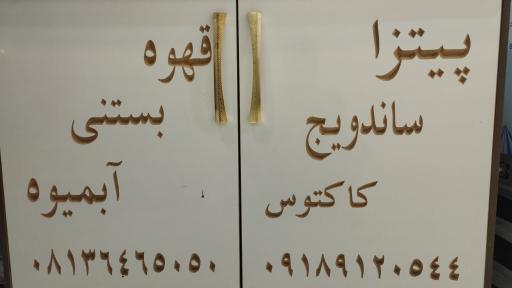 پیتزا
ساندویچ
کاکتوس
۰۹۱۸۹۱۲۰۵۴۴
قهوه
بستنی
آبمیوه
۰۸۱۳۶۴۶۵۰۵۰